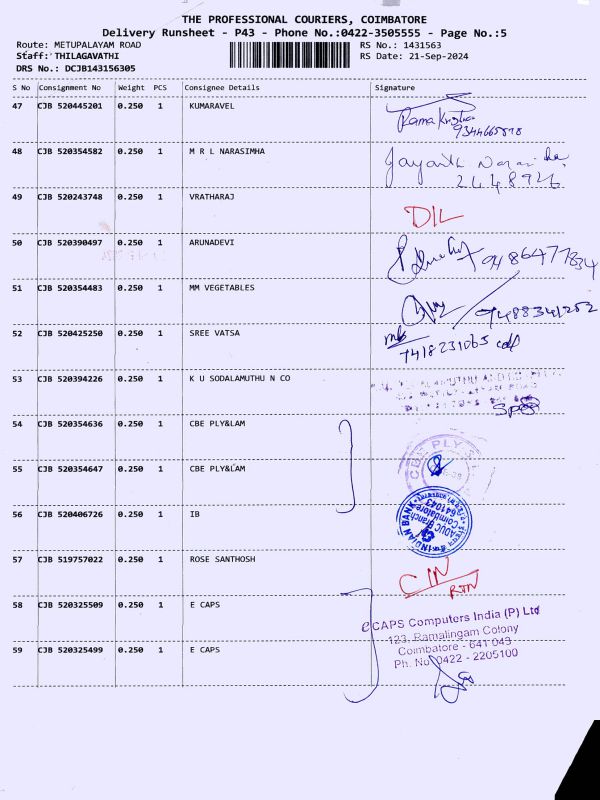 THE PROFESSIONAL COURIERS, COIMBATORE
Delivery Runsheet - P43 - Phone No.:0422-3505555 - Page No.:5
Route: METUPALAYAM ROAD RS No.: 1431563
Staff: THILAGAVATHI RS Date: 21-Sep-2024
DRS No.: DCJB143156305
S No Consignment No Weight PCS Consignee Details Signature
47 CJB 520445201 0.250 1 KUMARAVEL
Rama Krishna
9344665878
48 CJB 520354582 0.250 1 M R L NARASIMHA
Jayanth
2448926
49 CJB 520243748 0.250 1 VRATHARAJ
DIL
50 CJB 520390497 0.250 1 ARUNADEVI
9486477834
51 CJB 520354483 0.250 1 MM VEGETABLES
9488341252
52 CJB 520425250 0.250 1 SREE VATSA
7418231065
53 CJB 520394226 0.250 1 K U SODALAMUTHU N CO
54 CJB 520354636 0.250 1 CBE PLY&LAM
CBE PLY
55 CJB 520354647 0.250 1 CBE PLY&LAM
56 CJB 520406726 0.250 1 IB
INDIAN BANK
Coimbatore
641043
57 CJB 519757022 0.250 1 ROSE SANTHOSH
CIN
RTN
58 CJB 520325509 0.250 1 E CAPS
eCAPS Computers India (P) Ltd
123, Ramalingam Colony
59 CJB 520325499 0.250 1 E CAPS
Coimbatore - 641 043
Ph. No. 0422 - 2205100